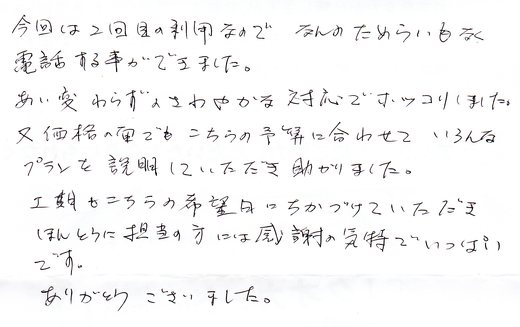 今回は2回目の利用なので なんのためらいもなく
電話する事ができました。
あい変わらずさわやかな対応でホッコリしました。
又価格の面でもこちらの予算に合わせて いろんな
プランを説明していただき助かりました。
工期もこちらの希望日にちかづけていただき
ほんとうに担当の方には感謝の気持でいっぱい
です。
ありがとうございました。